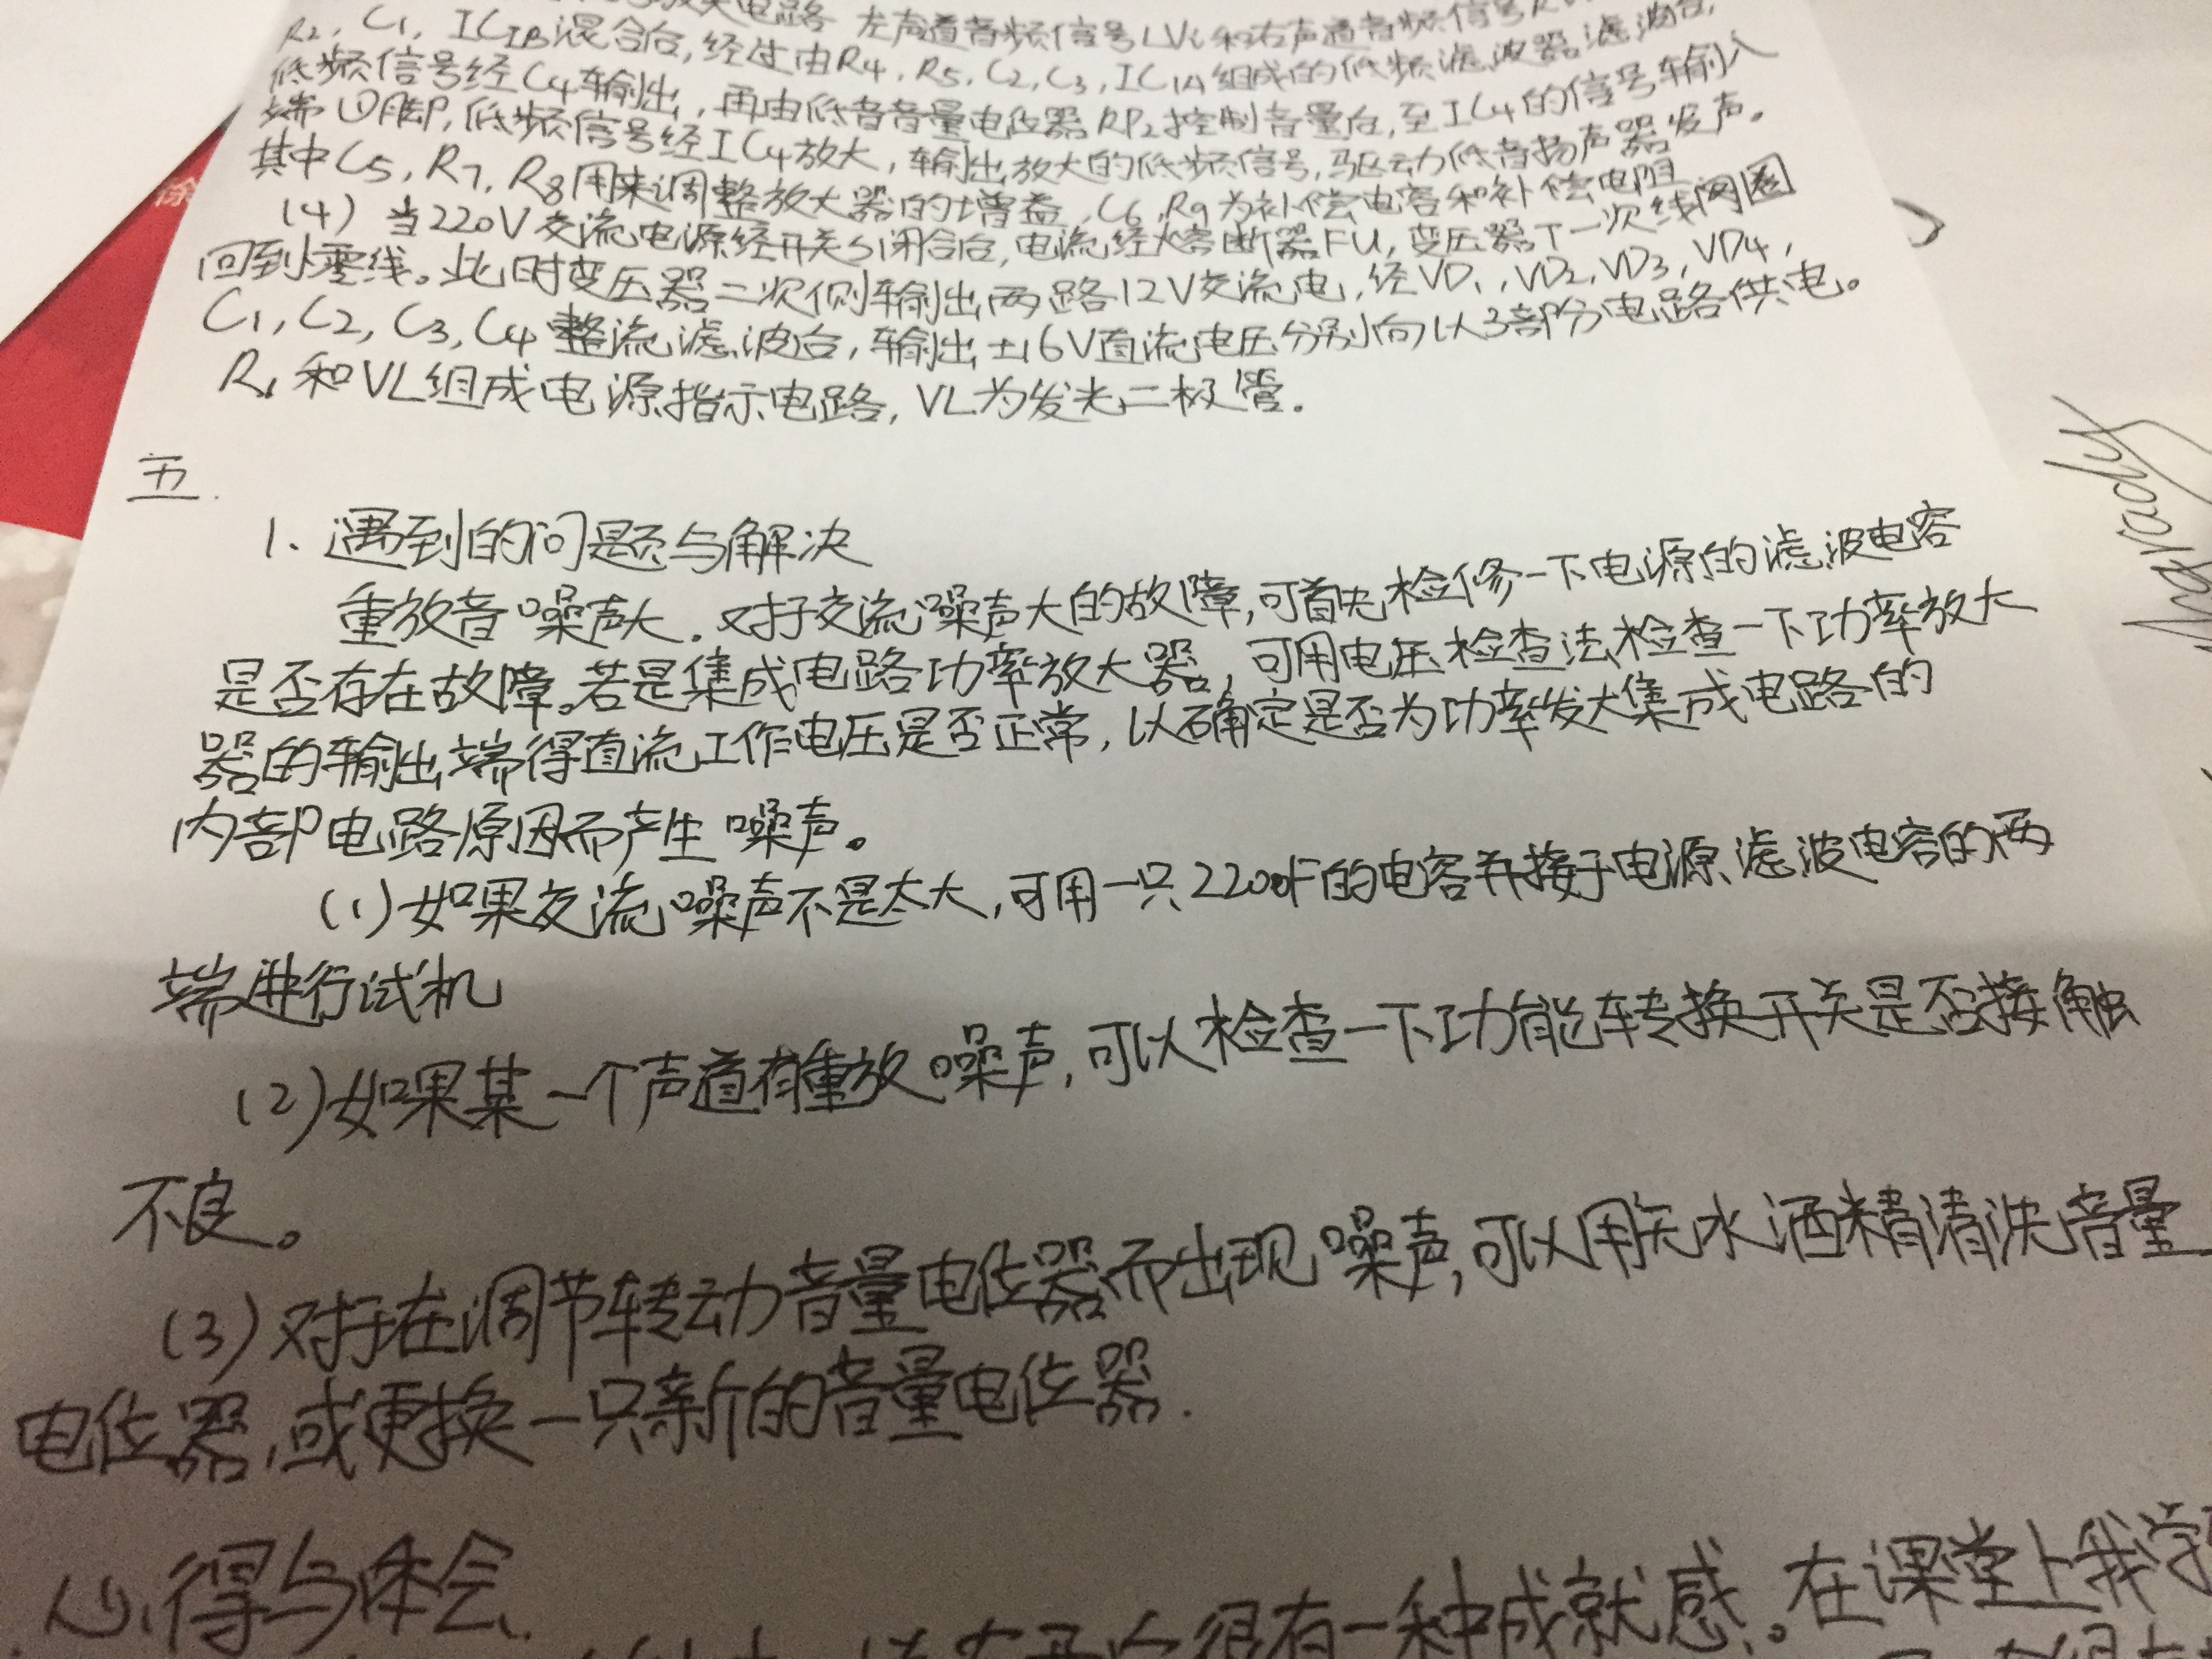 放大电路 左声道音频信号LVi和右声道音频信号R
R2, C1, IC1B混合后, 经过由R4, R5, C2, C3, IC1A组成的低频滤波器滤波后,
低频信号经C4输出, 再由低音音量电位器RP2控制音量后, 至IC4的信号输入
端①脚, 低频信号经IC4放大, 输出放大的低频信号, 驱动低音扬声器发声。
其中C5, R7, R8用来调整放大器的增益, C6, R9为补偿电容和补偿电阻
(4) 当220V交流电源经开关S1闭合后, 电流经熔断器FU, 变压器T一次线圈
回到零线。此时变压器二次侧输出两路12V交流电, 经VD1, VD2, VD3, VD4,
C1, C2, C3, C4整流滤波后, 输出±16V直流电压分别向以3部分电路供电。
R1和VL组成电源指示电路, VL为发光二极管.
五.
1. 遇到的问题与解决
重放音噪声大. 对于交流噪声大的故障, 可首先检修一下电源的滤波电容
是否存在故障。若是集成电路功率放大器, 可用电压检查法检查一下功率放大
器的输出端得直流工作电压是否正常, 以确定是否为功率发大集成电路的
内部电路原因而产生噪声。
(1) 如果交流噪声不是太大, 可用一只的电容并接于电源滤波电容的两
端进行试机
(2) 如果某一个声道有重放噪声, 可以检查一下功能转换开关是否接触
不良。
(3) 对于在调节转动音量电位器而出现噪声, 可以用无水洒精清洗音量
电位器, 或更换一只新的音量电位器.
心得与体会
很有一种成就感。在课堂上我学